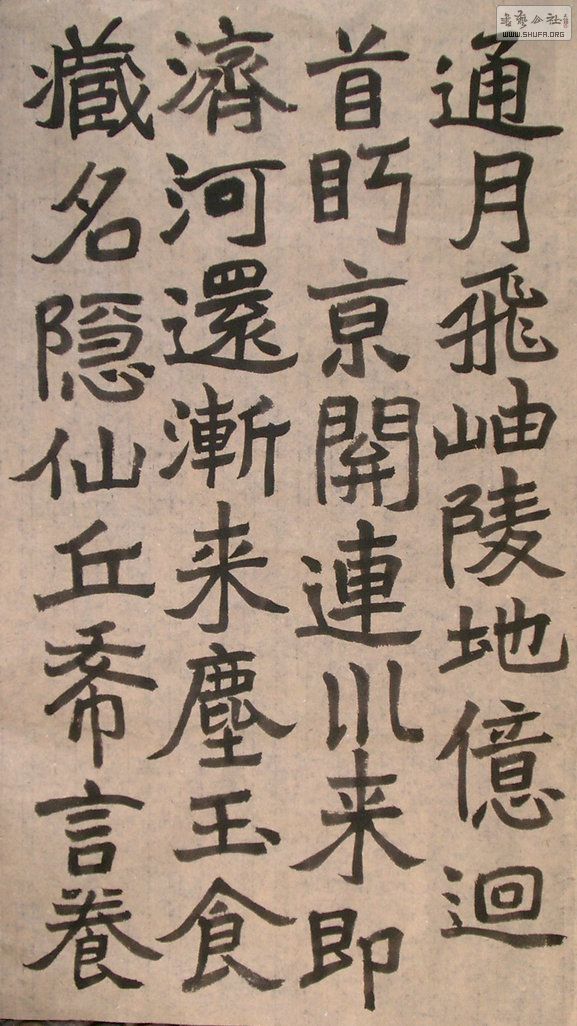 通月飛岫陵地億迴
首眄京關連川来即
濟河還漸来塵玉食
藏名隐仙丘希言養
書藝公社
WWW.SHUFA.ORG